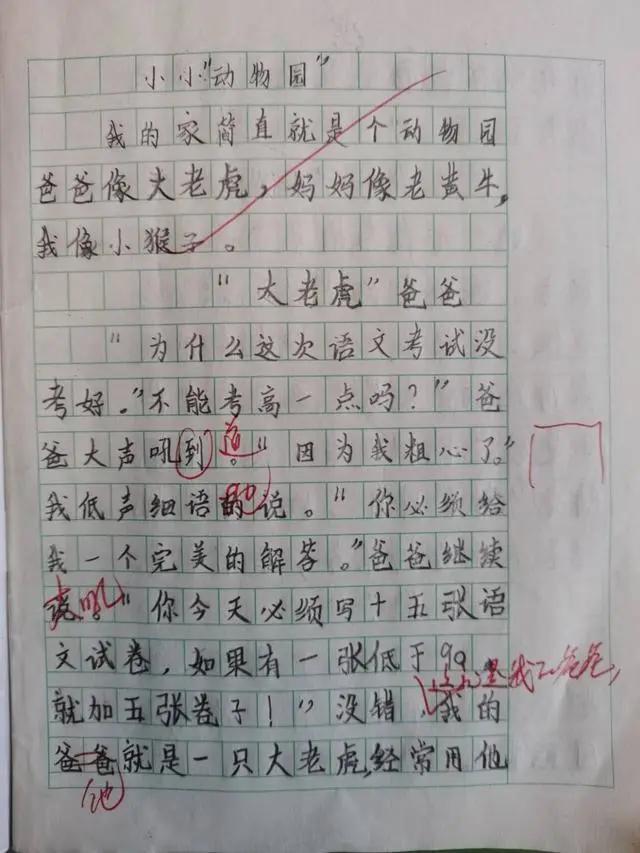 小小"动物园"
我的家简直就是个动物园
爸爸像大老虎，妈妈像老黄牛，
我像小猴子。
"大老虎"爸爸
"为什么这次语文考试没
考好。"不能考高一点吗？"爸
道
爸大声吼到。"因为我粗心了。"
我低声细语的说。"你必须给
我一个完美的解答。"爸爸继续
吼
说。"你今天必须写十五张语
文试卷，如果有一张低于99
就加五张卷子！"没错，我的
爸爸就是一只大老虎，经常用他
他